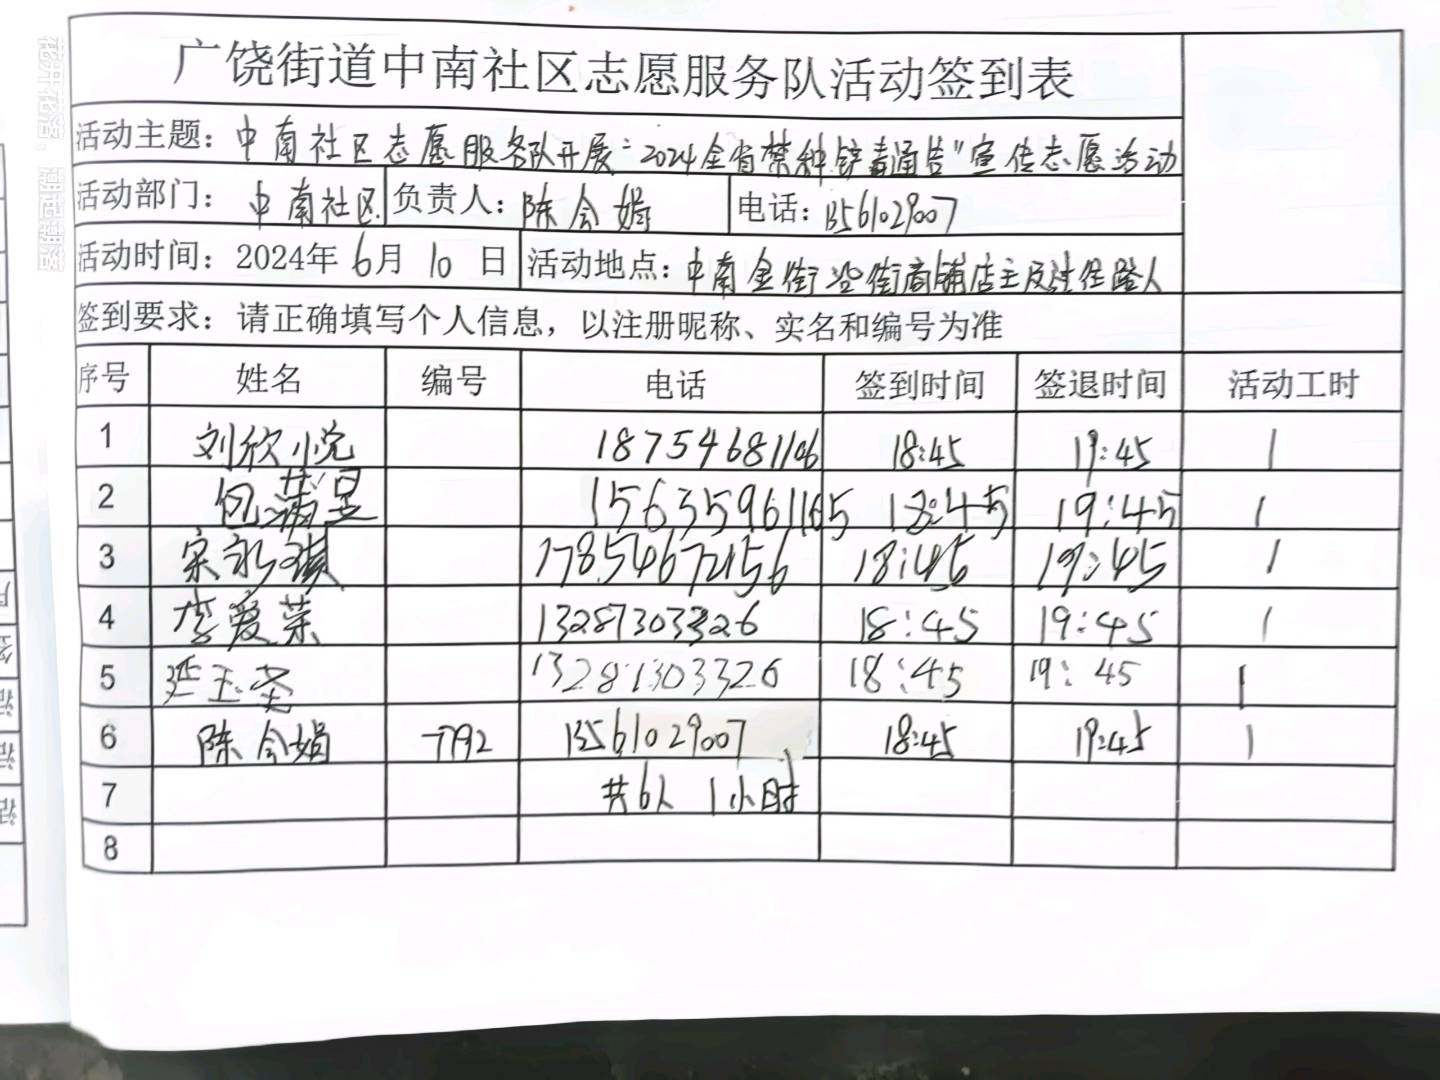 广饶街道中南社区志愿服务队活动签到表
活动主题：中南社区志愿服务队开展"2024全省禁种铲毒通告"宣传志愿活动
活动部门：中南社区 负责人：陈令娟 电话：13561029007
活动时间：2024年6月10日 活动地点：中南金街沿街商铺店主及过往路人
签到要求：请正确填写个人信息，以注册昵称、实名和编号为准
序号 姓名 编号 电话 签到时间 签退时间 活动工时
1 刘欣悦 18754681106 18:45 19:45 1
2 包满昱 15635961165 18:45 19:45 1
3 宋永琪 17854672156 18:45 19:45 1
4 李爱荣 13287303326 18:45 19:45 1
5 延玉尧 13281303326 18:45 19:45 1
6 陈令娟 7792 13561029007 18:45 19:45 1
7 共6人 1小时
8
花开花落，潮起潮落